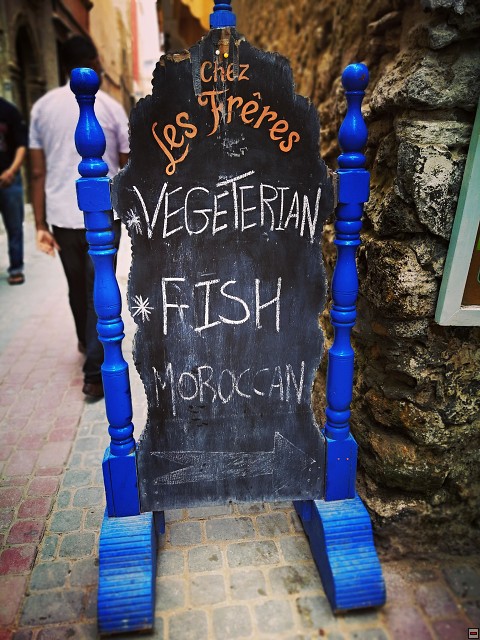 Chez
Les Frères
* VEGETERIAN
* FISH
MOROCCAN